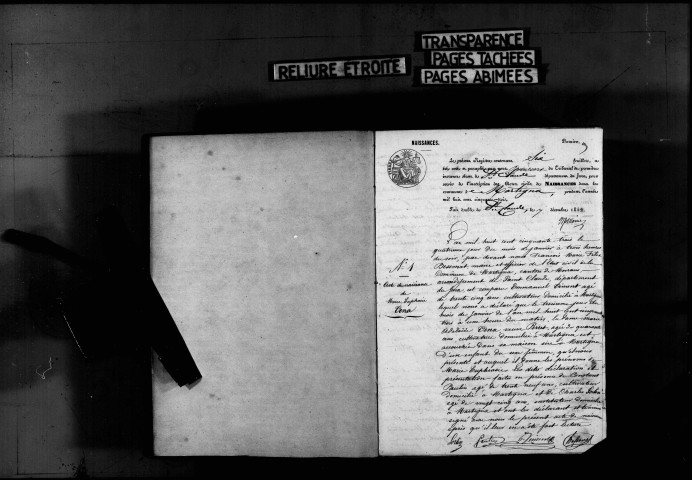 TRANSPARENCE
RELIURE ETROITE
PAGES TACHÉES
PAGES ABIMEES
NAISSANCES.
Premier
Le présent Registre contenant Six feuillets, a
été coté et paraphé par nous
du Tribunal de première
instance séant à St Claude département du Jura, pour
servir à l'inscription des Actes civils de NAISSANCES dans la
commune de Martigna, pendant l'année
mil huit cent cinquante-trois.
Fait double à St Claude, le 7 décembre 1852.
N° 1
Acte de naissance
de
Marie Euphrosine
L'an mil huit cent cinquante trois le
quatrième jour du mois de janvier à trois heures
du soir, par devant nous François Marie Félix
maire et officier de l'état civil de la
Commune de Martigna, canton de Moirans
arrondissement de Saint Claude, département
du Jura, est comparu Emmanuel agé
de trente cinq ans cultivateur domicilié à Martigna
lequel nous a déclaré que le troisième jour du
mois de janvier de l'an mil huit cent cinquante
trois à une heure du matin, la dame Marie
Adélaïde agée de quarante
ans cultivatrice domiciliée à Martigna est
accouchée dans sa maison sise à Martigna
D'un enfant de sexe féminin, qu'il nous
présente et auquel il donne les prénoms de
Marie Euphrosine. Les dites déclaration et
présentation faites en présence de
agé de trente neuf ans, cultivateur
domicilié à Martigna et de Charles
agé de vingt cinq ans, instituteur domicilié
à Martigna et ont les déclarant et témoins
signé avec nous le présent acte de naissance
après qu'il leur en a été fait lecture